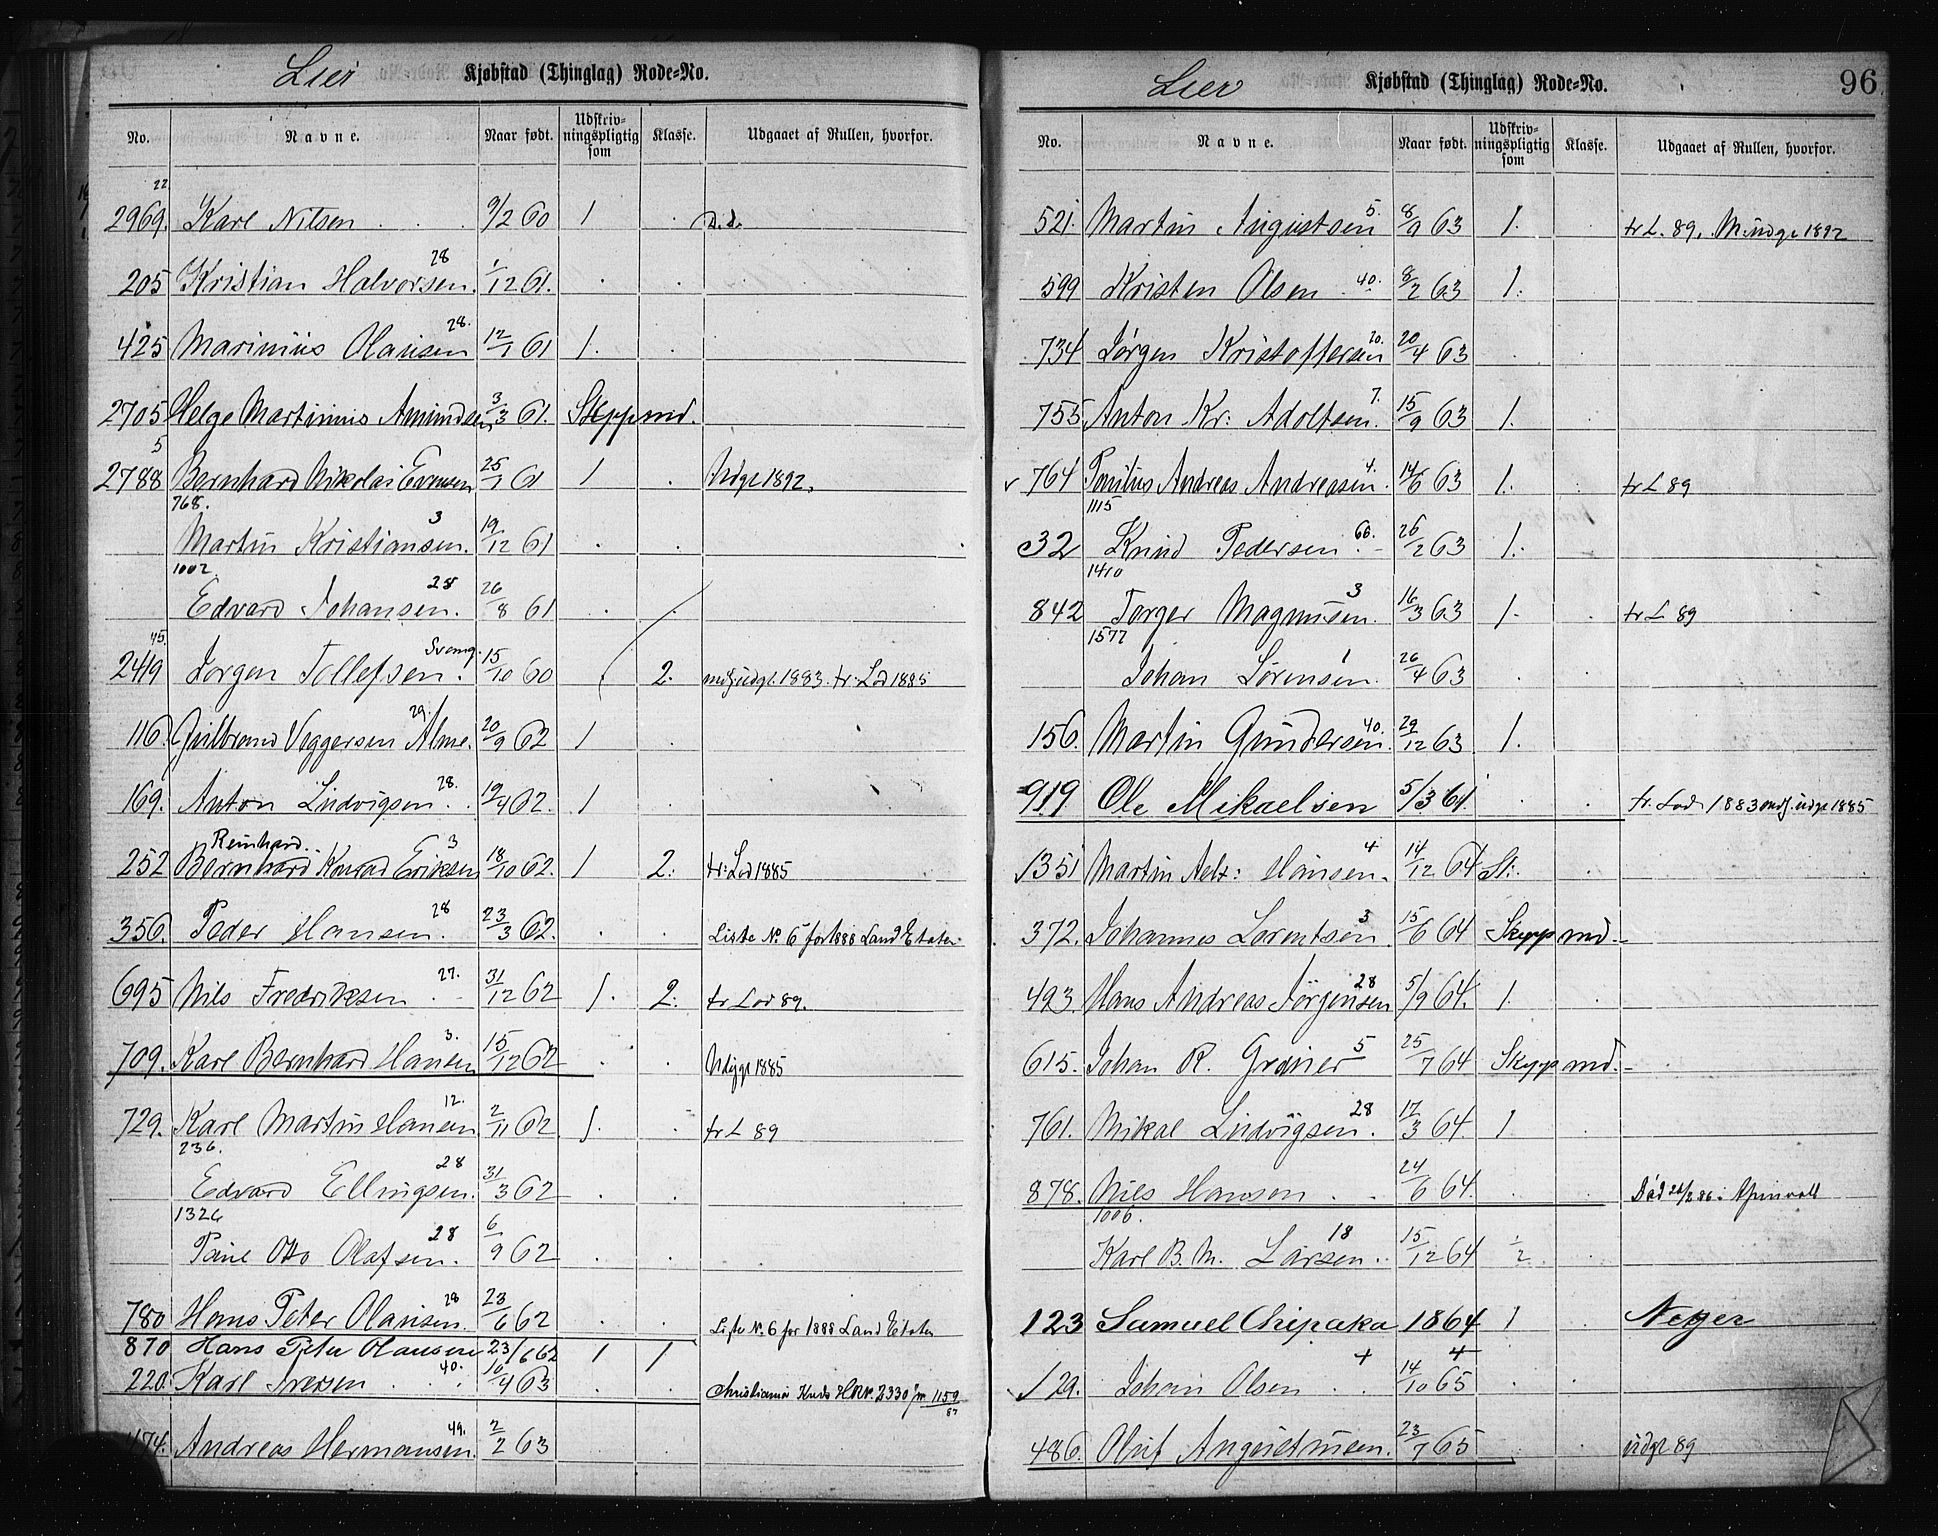 Lier Kjøbstad (Thinglag) Rode-No.
No. Navne. Naar født. Udskriv-ningspligtig som Klasse. Udgaaet af Rullen, hvorfor.
22
2969. Karl Nilsen 9/2 60 1
28
205 Kristian Halvorsen. 1/12 61.
28.
425 Marinius Olausen 12/1 61 1.
2705 Helge Martinius Amundsen 3/3 61. Skyppmd.
5
2788 Bernhard Nikolai Evensen 25/1 61 1 Udgl 1892.
768. 3
Martin Kristiansen. 19/12 61
1002 28
Edvard Johansen. 26/8 61
45. Svang.
2419 Jørgen Tollefsen. 15/10 60 2. mdf. udgl. 1883. tr. Lod 1885
29.
116. Gulbrand Veggersen Alme. 20/9 62 1
28.
169. Anton Ludvigsen 19/4 62. 1
Reinhard. 3
252 Bernhard Konrad Eriksen 18/10 62. 1 2. tr. Lod 1885
28
356. Peder Hansen. 23/3 62. Liste No. 6 for 1888 Land Etaten.
27.
695 Nils Fredriksen 31/12 62 1. 2. tr Lod 89.
3.
709. Karl Bernhard Hansen 15/12 62 Udgl 1885
12.
729. Karl Martin Hansen 2/11 62. 1. tr L 89
236. 28
Edvard Ellingsen. 31/3 62
1326 28
Paul Otto Olafsen. 6/9 62
28
780 Hans Peter Olausen. 23/6 62 Liste No. 6 for 1888 Land Etaten
870 Hans Peter Olausen 23/6 62 1 1
40.
220. Karl Iversen 10/4 63 Christiania Kreds HRN. 2330 1159/87
49.
474. Andreas Hermansen. 2/2 63
Lier Kjøbstad (Thinglag) Rode-No. 96
No. Navne. Naar født. Udskriv-ningspligtig som Klasse. Udgaaet af Rullen, hvorfor.
5.
521. Martin Augustsen 8/9 63 1. tr L. 89. M. udgl 1892
40.
599 Kristen Olsen 8/2 63 1.
20.
734 Jørgen Kristoffersen 20/4 63
7.
755 Anton Kr: Adolfsen. 15/9 63 1.
4.
764 Paulus Andreas Andreasen. 14/6 63 1. tr L 89
1115 66.
32 Knud Pedersen 26/2 63 1.
1410 3
842 Torger Magnussen. 16/3 63 1. tr L 89
1577 1
Johan Sørensen. 26/4 63
40.
156. Martin Gundersen. 29/12 63 1.
919. Ole Mikaelsen 5/3 61. tr. Lod 1883 mdf. udgl 1885
4
1351 Martin Aelx: Hansen. 14/12 64 St.
3
372. Johannes Lorentsen 15/6 64 Skyppmd.
28
493. Hans Andreas Jørgensen 5/9 64. 1.
5
615. Johan R. Grøner 25/7 64 Skyppmd.
28
761. Mikal Ludvigsen. 17/3 64. 1
878. Nils Hansen 24/6 64. Død
1006. 18
Karl B. M. Larsen. 15/12 64 1/2
123 Samuel Chipaka 1864 1 Neger
4 4
129. Johan Olsen 14/10 65
486. Oluf Augustinsen. 23/7 65 udgl 89